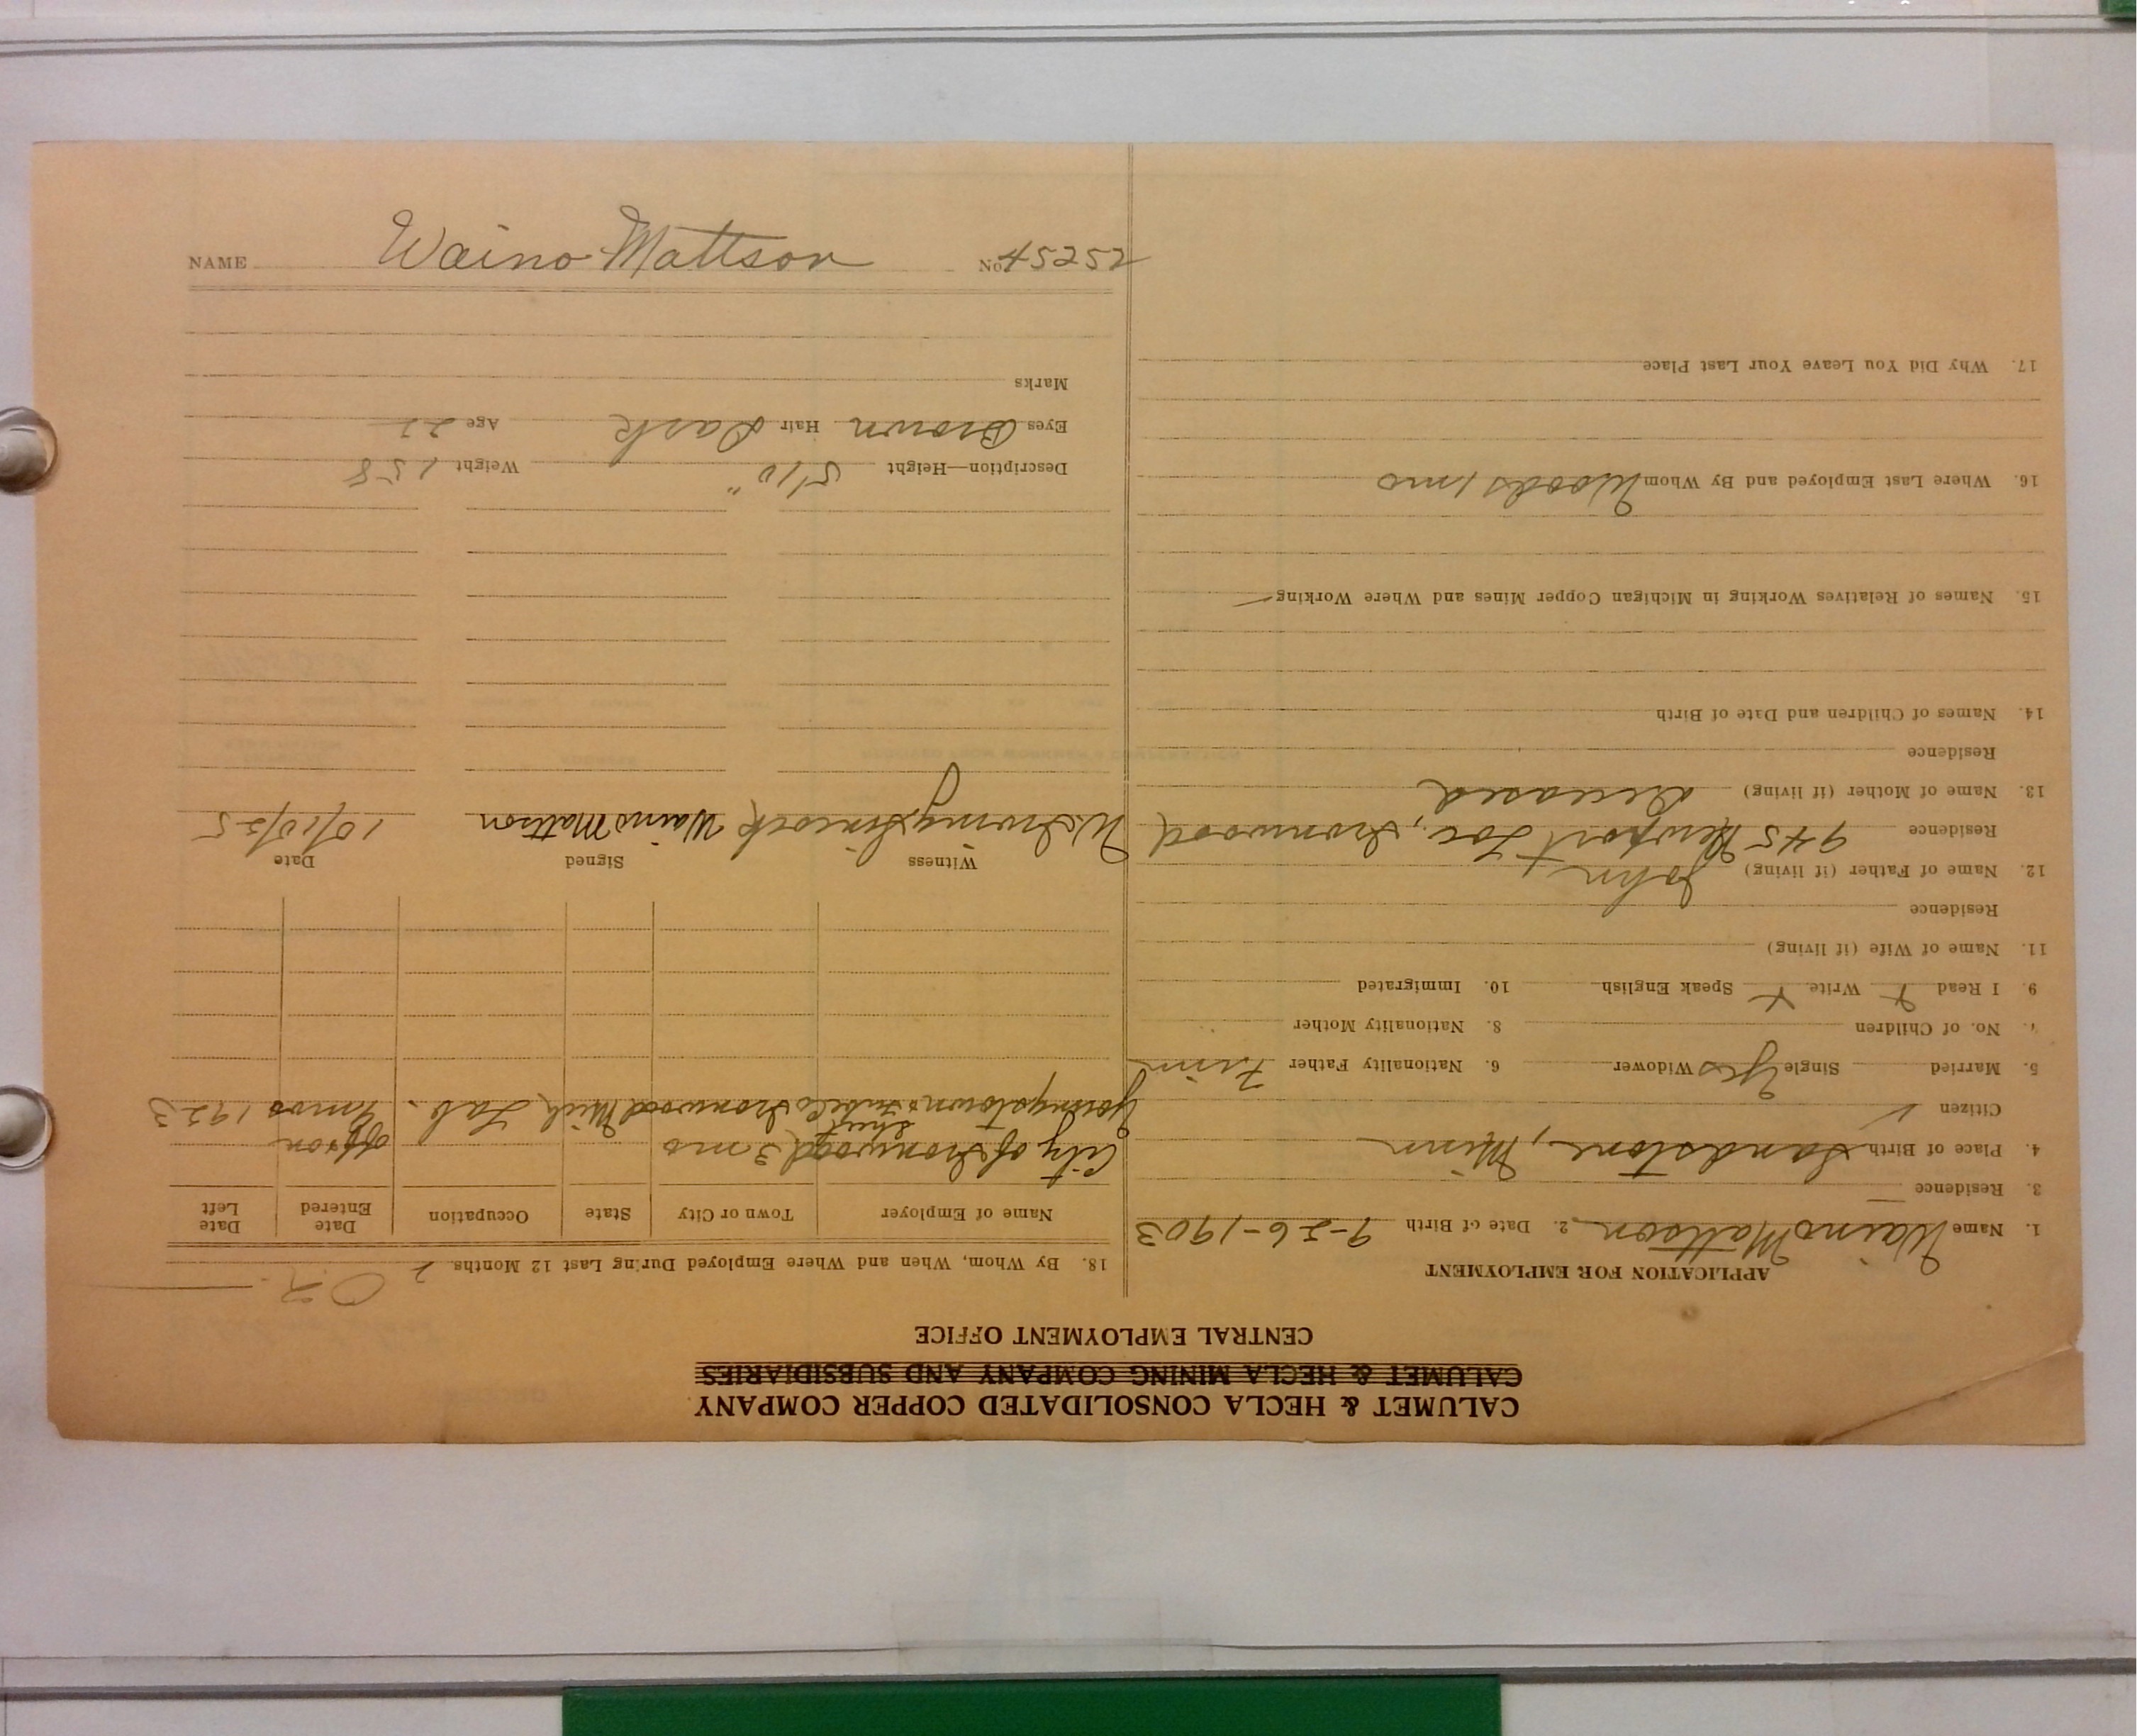 CALUMET & HECLA CONSOLIDATED COPPER COMPANY
CALUMET & HECLA MINING COMPANY AND SUBSIDIARIES
CENTRAL EMPLOYMENT OFFICE
APPLICATION FOR EMPLOYMENT
1. Name Waino Mattson 2. Date of Birth 9-26-1903
3. Residence
4. Place of Birth Sandstone, Minn
Citizen
5. Married Single Yes Widower 6. Nationality Father Finn
7. No. of Children 8. Nationality Mother
9. I Read Write Speak English 10. Immigrated
11. Name of Wife (if living)
Residence
12. Name of Father (if living) John
Residence 945 Newport Loc., Ironwood
13. Name of Mother (if living) deceased
Residence
14. Names of Children and Date of Birth
15. Names of Relatives Working in Michigan Copper Mines and Where Working
16. Where Last Employed and By Whom Woods 1 mo
17. Why Did You Leave Your Last Place
O.K.
18. By Whom, When and Where Employed During Last 12 Months.
Name of Employer Town or City State Occupation Date Entered Date Left
City of Ironwood 3 mo off & on
Youngstown Ironwood Mich Lab. 9 mos 1923
Witness Signed Date
W. Irving Sincock Waino Mattson 10/10/25
Description—Height 5'10" Weight 158
Eyes Brown Hair Dark Age 22
Marks
NAME Waino Mattson No. 45252